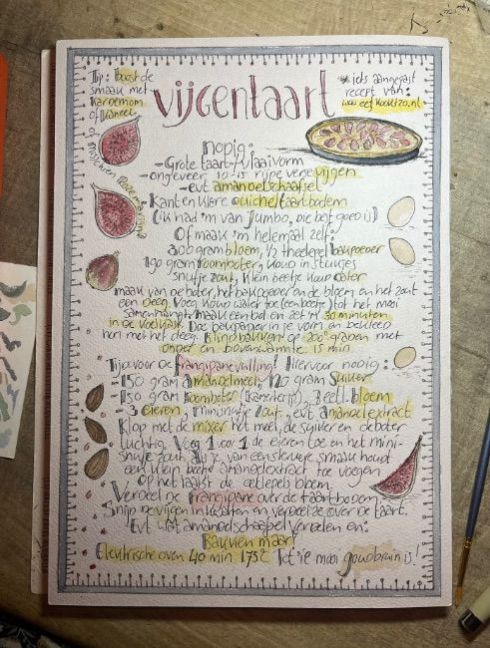 Tip: Boost de
smaak met
kardemom
of kaneel
* iets aangepast
recept van:
www.eefkooktzo.nl
vijgentaart
nodig:
- Grote taart-/vlaaivorm
- ongeveer 10-15 rijpe verse vijgen
- evt amandelschaafsel
- Kant en klare quiche/taartbodem
(ik had 'm van Jumbo, die best goed is)
Of maak 'm helemaal zelf:
300 gram bloem, ½ theelepel bakpoeder
190 gram roomboter, koud in stukjes
snufje zout, klein beetje koud water
maak van de boter, het bakpoeder en de bloem en het zout
een deeg. Voeg koud water toe (een beetje) tot het mooi
samenhangt, maak een bal en zet 'm 30 minuten
in de koelkast. Doe bakpapier in je vorm en bekleed
hem met het deeg. Blind bakken op 200 graden met
onder en bovenwarmte 15 min
Tijd voor de frangipanevulling! Hiervoor nodig:
- 150 gram amandelmeel, 120 gram suiker
- 150 gram roomboter (kamertemp), 2 eetl. bloem
- 3 eieren, minisnufje zout, evt amandelextract
Klop met de mixer het meel, de suiker en de boter
luchtig. Voeg 1 voor 1 de eieren toe en het mini-
snufje zout. Als je van een sterke smaak houdt
een klein beetje amandelextract toe voegen
Op het laatst de eetlepels bloem.
Verdeel de frangipane over de taartbodem
Snijd de vijgen in kwarten en verdeel ze over de taart.
Evt wat amandelschaafsel verdelen en:
Bakken maar!
Elektrische oven 40 min 175°C Tot ie mooi goudbruin is!